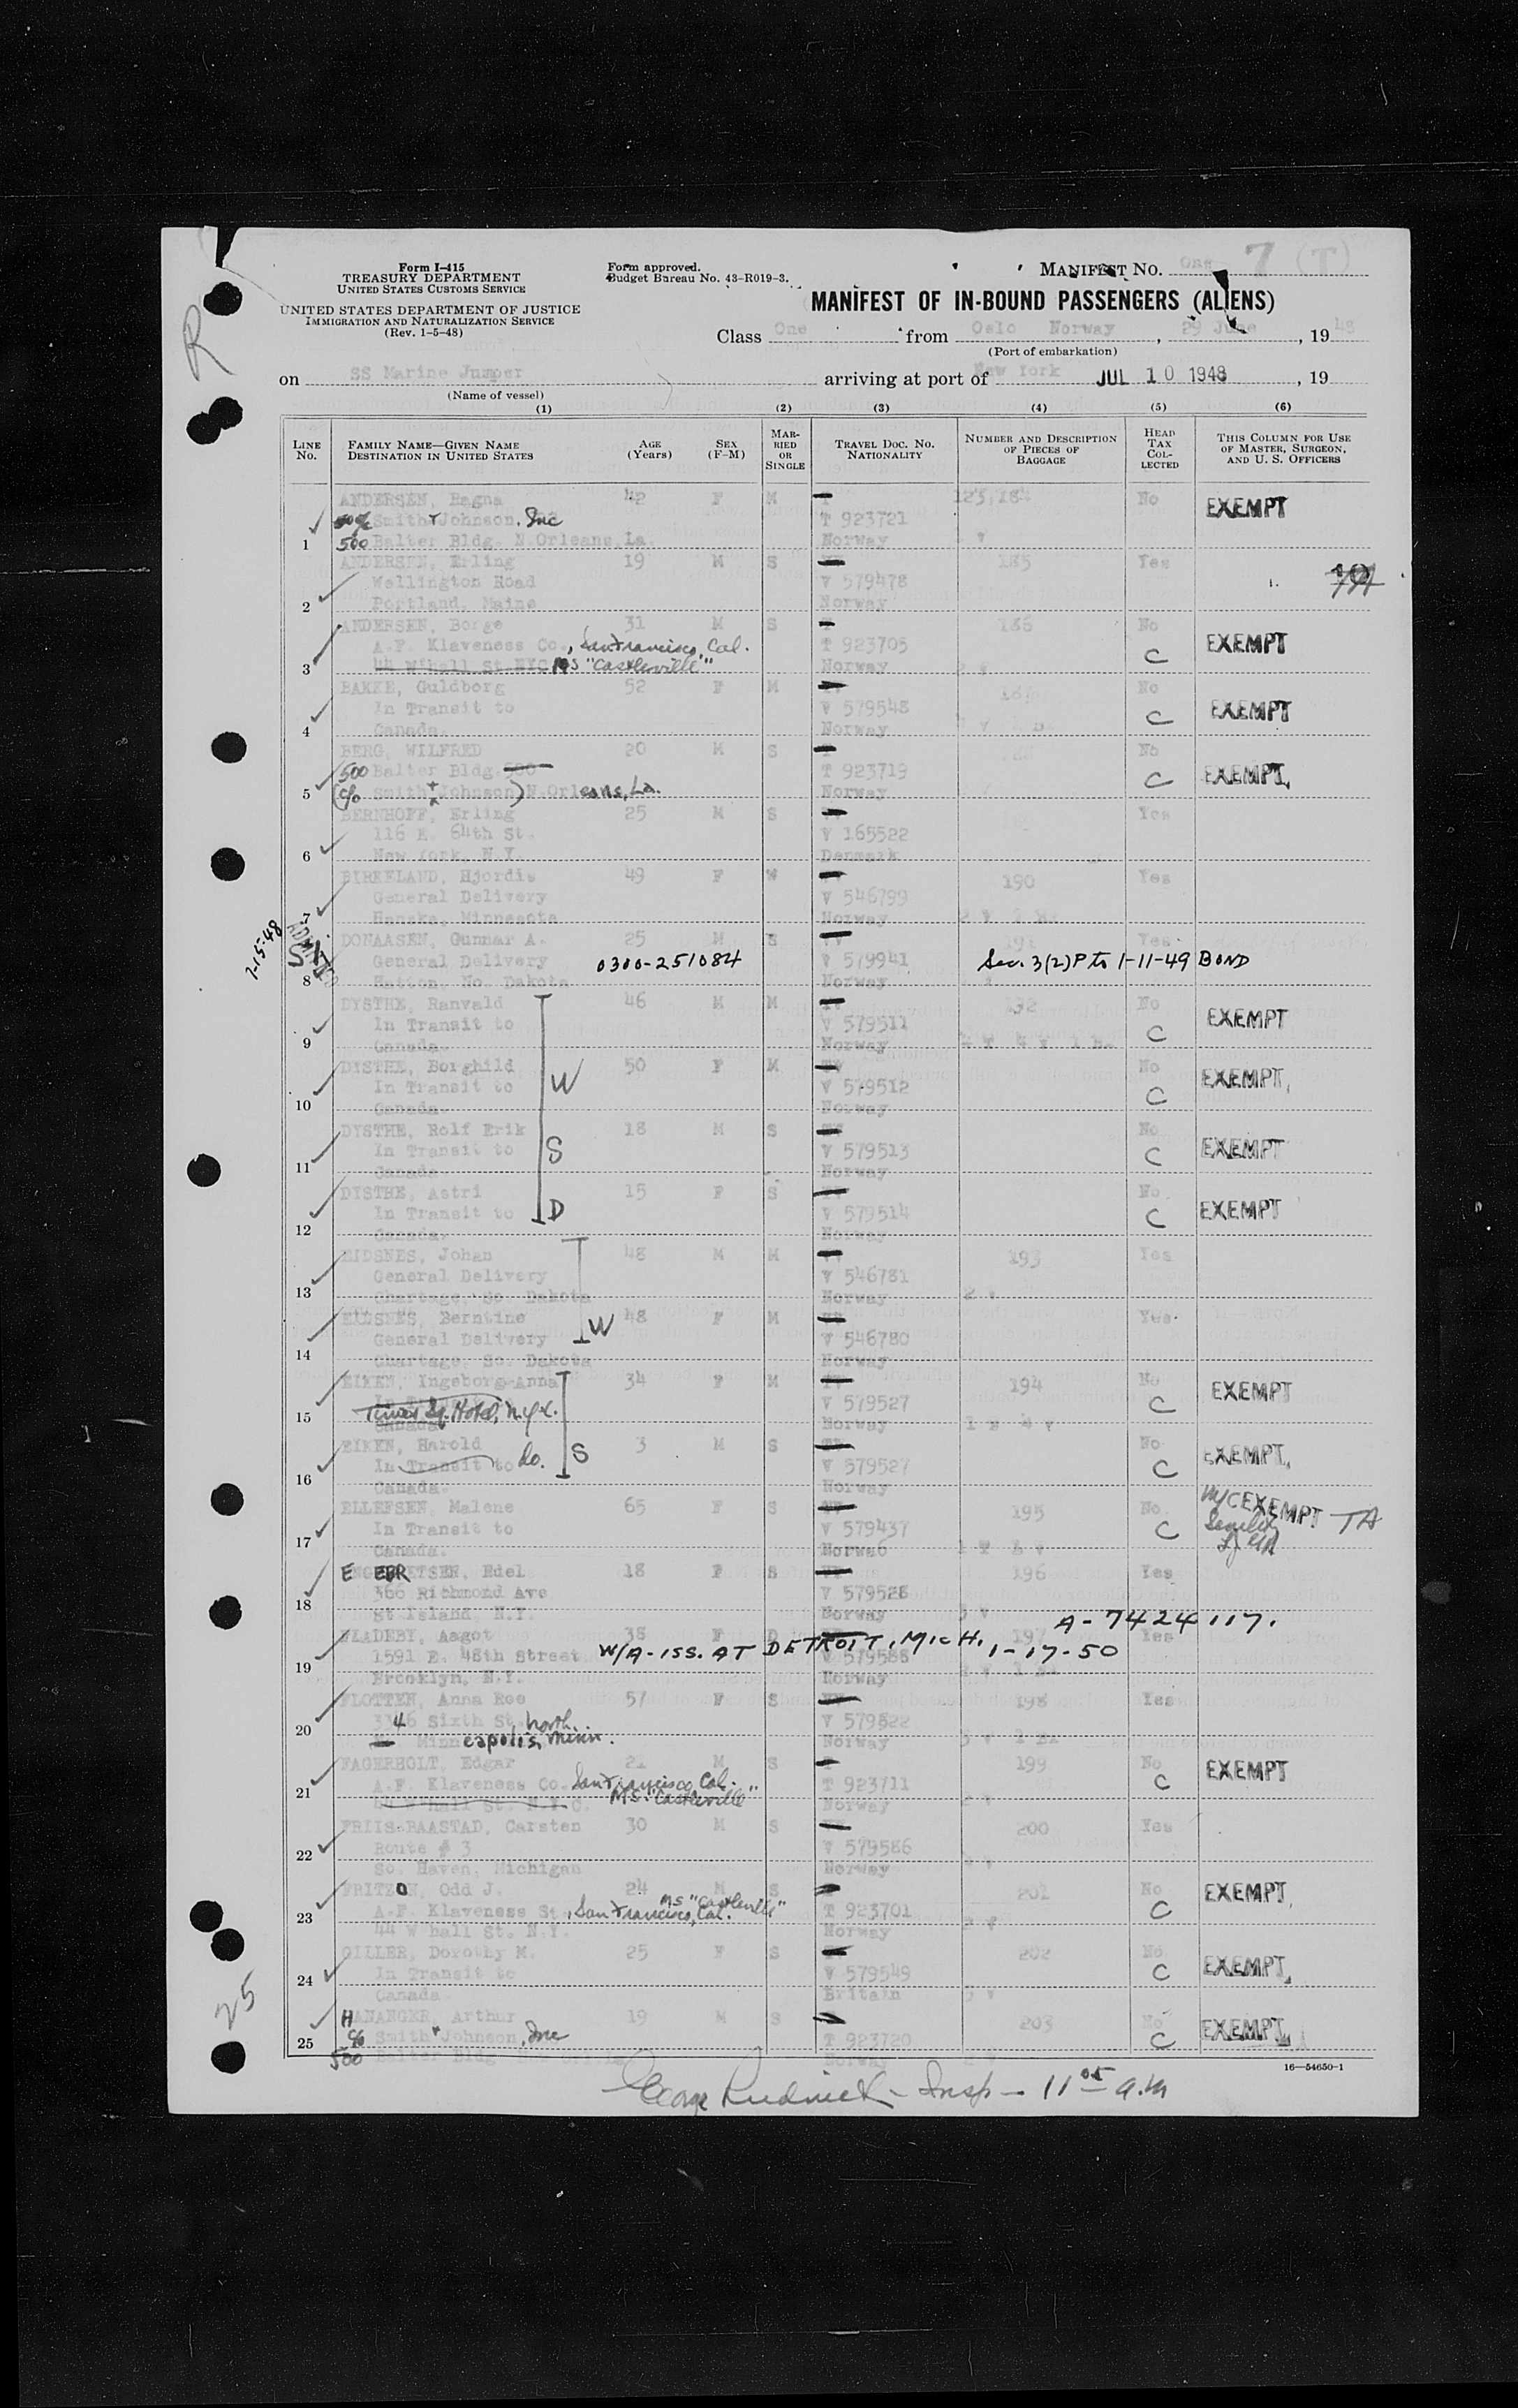 Form I-415
TREASURY DEPARTMENT
UNITED STATES CUSTOMS SERVICE
UNITED STATES DEPARTMENT OF JUSTICE
IMMIGRATION AND NATURALIZATION SERVICE
(Rev. 1-5-48)
Form approved.
Budget Bureau No. 43-R019-3.
MANIFEST No. One 7 (T)
MANIFEST OF IN-BOUND PASSENGERS (ALIENS)
Class One from Oslo Norway, 29 June, 1948
(Port of embarkation)
on SS Marine Jumper arriving at port of New York JUL 10 1948, 19
(Name of vessel)
R
(1) (2) (3) (4) (5) (6)
LINE No. FAMILY NAME—GIVEN NAME DESTINATION IN UNITED STATES AGE (Years) SEX (F-M) MARRIED OR SINGLE TRAVEL DOC. No. NATIONALITY NUMBER AND DESCRIPTION OF PIECES OF BAGGAGE HEAD TAX COLLECTED THIS COLUMN FOR USE OF MASTER, SURGEON, AND U. S. OFFICERS
ANDERSEN, Ragna 42 F M No EXEMPT
Smith + Johnson, Inc T 923721
1 500 Balter Bldg. N.Orleans, La. Norway
ANDERSEN, Erling 19 M S 185 Yes
Wellington Road V 579478
2 Portland, Maine Norway
ANDERSEN, Borge 31 M S 186 No EXEMPT
A.F. Klaveness Co., San Francisco, Cal. T 923705 C
3 44 Whall St. NYC MS "Castleville" Norway
BAKKE, Guldborg 52 F M No EXEMPT
In Transit to V 579548 C
4 Canada. Norway
BERG, WILFRED 20 M S No EXEMPT
500 Balter Bldg. 500 T 923719 C
5 (c/o Smith + Johnson) N.Orleans, La. Norway
BERNHOFF, Erling 25 M S Yes
116 E. 64th St. V 165522
6 New York, N.Y. Denmark
BIRKELAND, Hjordis 49 F W 190 Yes
General Delivery V 546799
7 Hanska, Minnesota Norway
7-15-48 ADMITTED
DONAASEN, Gunnar A. 25 M S 191 Yes
General Delivery 0300-251084 V 579941 Sec. 3(2) P to 1-11-49 BOND
8 Hatton, No. Dakota Norway
DYSTHE, Ranvald 46 M M 192 No EXEMPT
In Transit to V 579511 C
9 Canada. Norway
DYSTHE, Borghild 50 F M No EXEMPT
In Transit to W V 579512 C
10 Canada. Norway
DYSTHE, Rolf Erik 18 M S No EXEMPT
In Transit to S V 579513 C
11 Canada Norway
DYSTHE, Astri 15 F S No EXEMPT
In Transit to D V 579514 C
12 Canada. Norway
EIDSNES, Johan 48 M M 193 Yes
General Delivery V 546781
13 Chartage, So Dakota Norway
EIDSNES, Berntine 48 F M Yes
General Delivery W V 546780
14 Chartage, So. Dakota Norway
EIKEN, Ingeborg-Anna 34 F M 194 No EXEMPT
Times Sq. Hotel, N.Y.C. V 579527 C
15 Canada Norway
EIKEN, Harold 3 M S No EXEMPT
In Transit to do. S V 579527 C
16 Canada. Norway
ELLEFSEN, Malene 65 F S 195 No EXEMPT TA
In Transit to V 579437 C
17 Canada. Norwa6
ENGEBRETSEN, Edel 18 F S 196 Yes
366 Richmond Ave V 579528
18 St Island, N.Y. Norway A-7424117.
FLADEBY, Aagot 38 F D 197 Yes
1591 E. 48th Street W/A-ISS. AT DETROIT, MICH. 1-17-50 V 579588
19 Brooklyn, N.Y. Norway
FLOTTEN, Anna Roe 57 F S 198 Yes
3346 Sixth St. North V 579522
20 Minneapolis, Minn. Norway
FAGERHOLT, Edgar 21 M S 199 No EXEMPT
A.F. Klaveness Co. San Francisco, Cal. T 923711 C
21 M.S. "Castleville" Norway
FRIIS-BAASTAD, Carsten 30 M S 200 Yes
Route # 3 V 579586
22 So. Haven, Michigan Norway
FRITZON, Odd J. 24 M S 201 No EXEMPT
A.F. Klaveness St., San Francisco, Cal. MS "Castleville" T 923701 C
23 44 W hall St. N.Y. Norway
GILLER, Dorothy M. 25 F S 202 No EXEMPT
In Transit to V 579549 C
24 Canada Britain
HANANGER, Arthur 19 M S 203 No EXEMPT
c/o Smith + Johnson, Inc T 923720 C
25 500 Balter Bldg Norway
25
16—54650-1
George Rudnick - Insp - 11 05 a.m